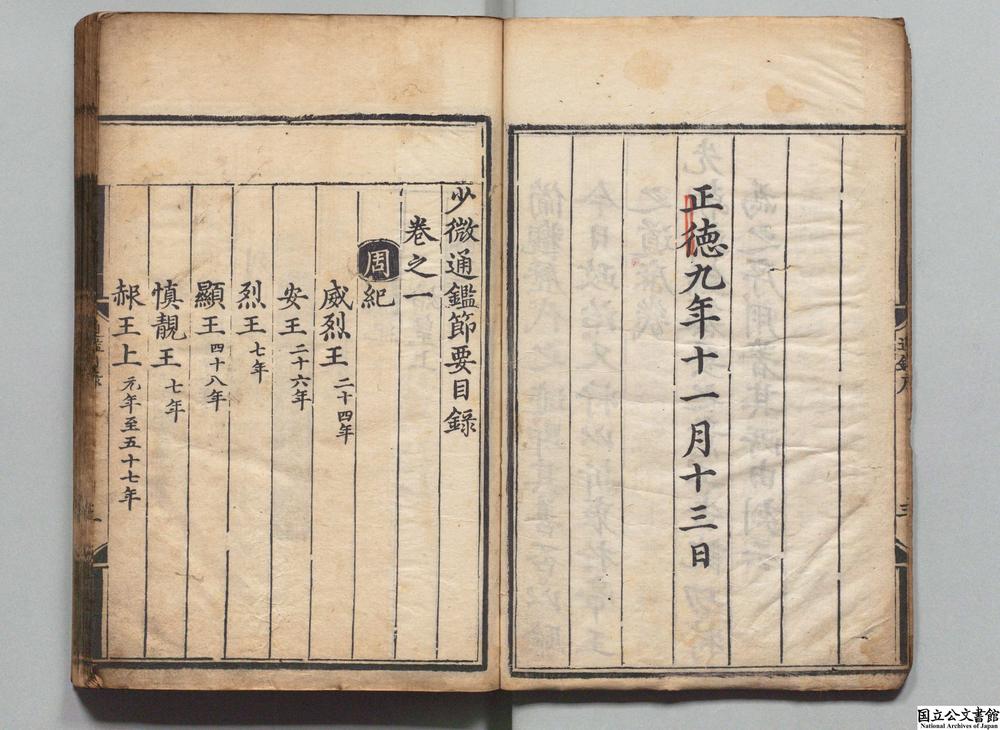 正徳九年十一月十三日
少微通鑑節要目録
卷之一
周紀
威烈王 二十四年
安王 二十六年
烈王 七年
顯王 四十八年
慎靚王 七年
赧王上 元年至五十七年
国立公文書館
National Archives of Japan